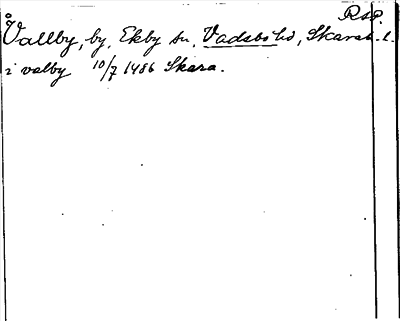 RAP.
Vallby, by, Ekby sn, Vadsbo hd, Skarab. l.
i valby 10/7 1486 Skara.